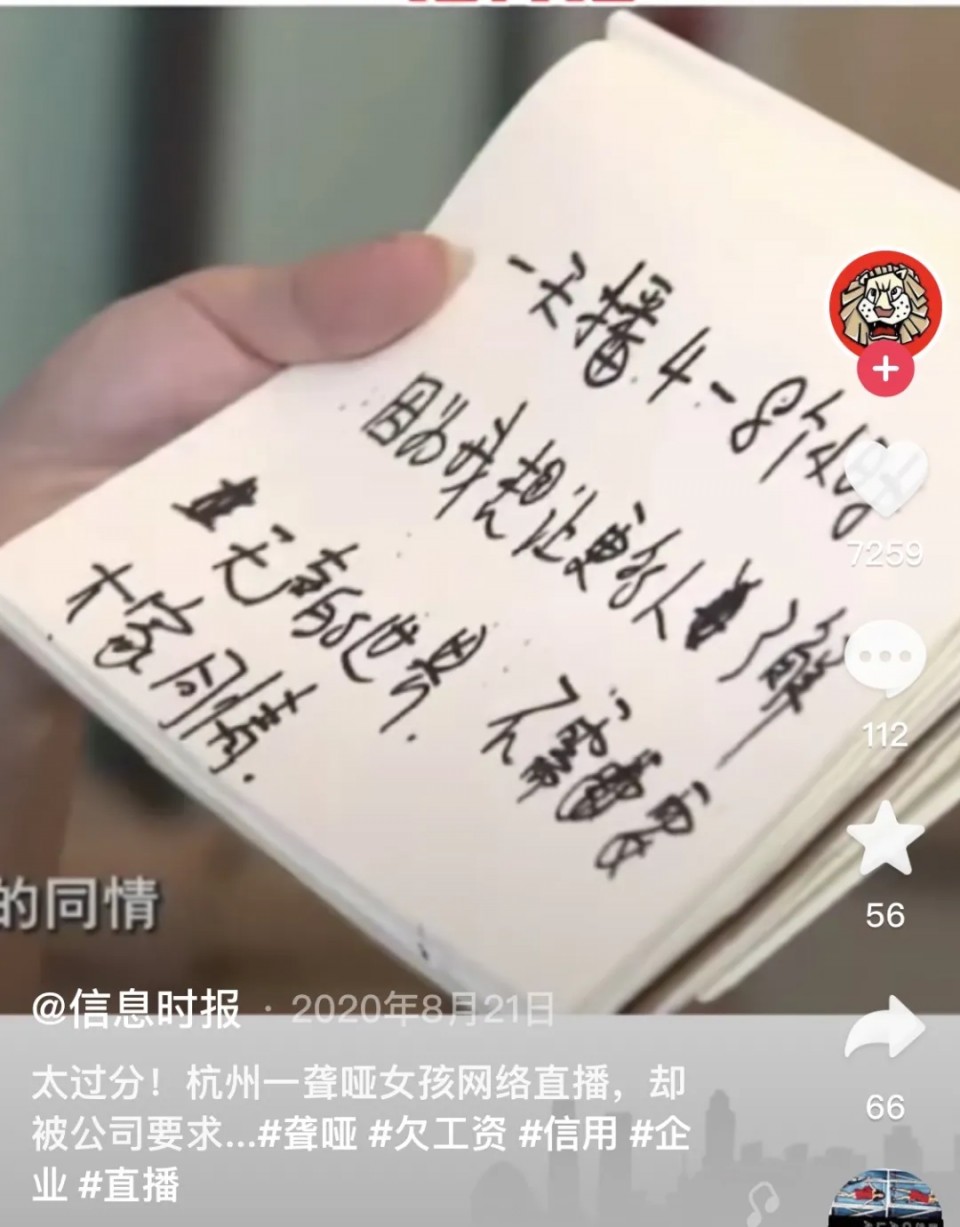 一天播4-8个小时
因为我想让更多人了解
无声世界.不需要
大家同情.
的同情
@信息时报 · 2020年8月21日
太过分！杭州一聋哑女孩网络直播，却
被公司要求...#聋哑 #欠工资 #信用 #企
业 #直播
7259
112
56
66